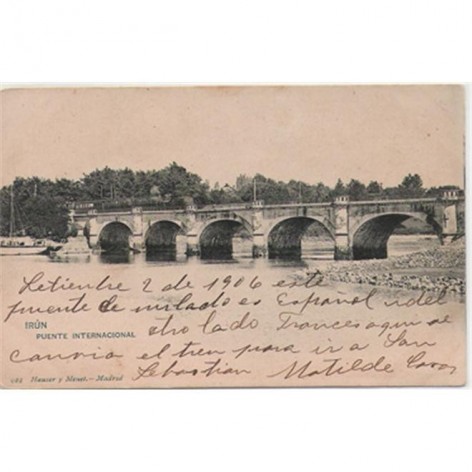 Setienbre 2 de 1906 este
puente de milado es Español i del
IRÚN
PUENTE INTERNACIONAL
otro lado Frances aqui se
canvia el tren para ir a San
Sebastian Matilde
Hauser y Menet.- Madrid